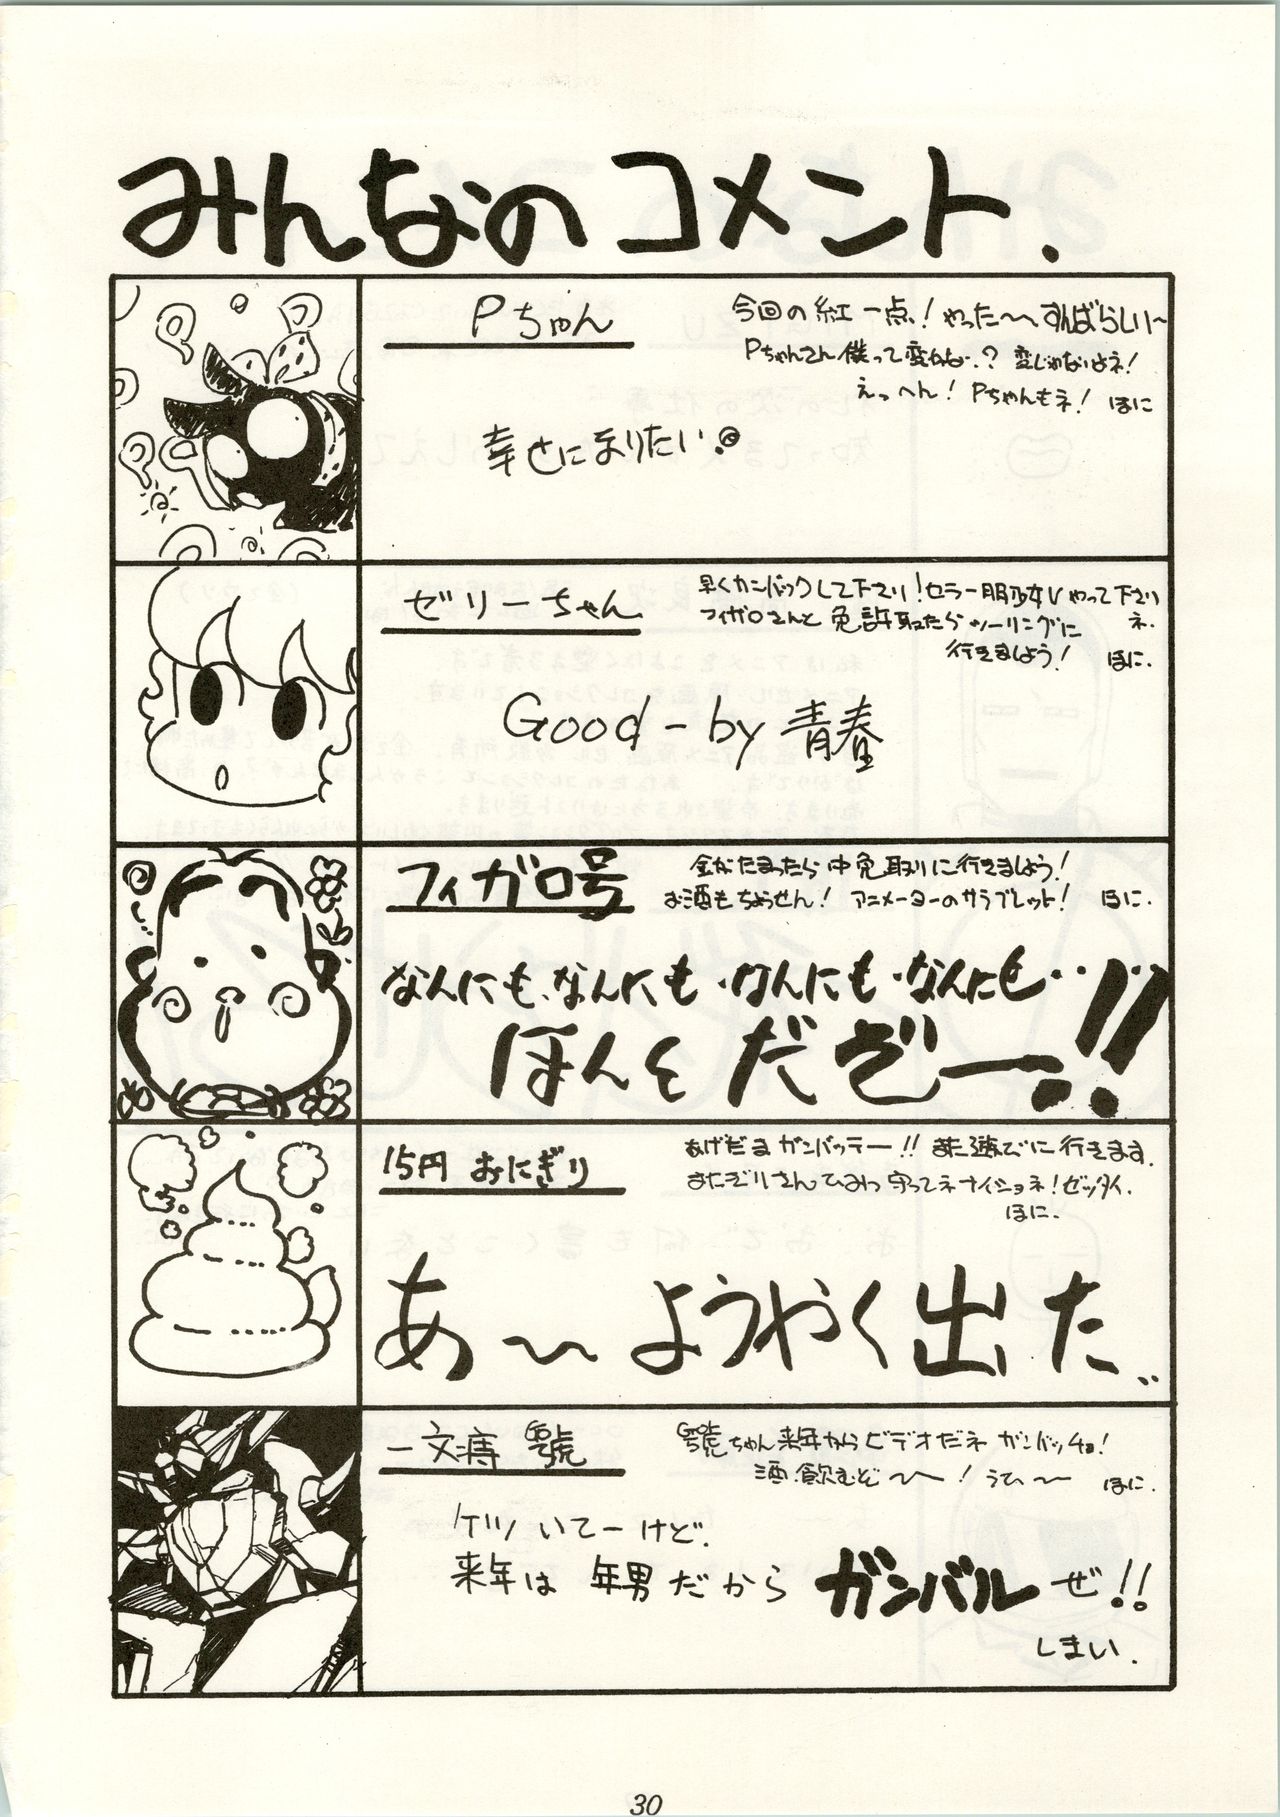 みんなのコメント.
Pちゃん
今回の紅一点！やった〜〜すんばらしい〜
Pちゃんさん僕って変かな.？ 変じゃないよネ！
えっへん！ Pちゃんもネ！ ほに
幸せになりたい。
ゼリーちゃん
早くカンバックして下さい！セラー服少女Vやって下さい
ネ.
フィガロさんと免許取たらツーリングに
行きましょう！ ほに.
Good-by 青春
フィガロ号
金がたまったら中免取りに行きましょう！
お酒もちょうせん！ アニメーターのサラブレット！ ほに.
なんにも、なんにも・なんにも・なんにも・・!!
ほんとだぞー.!!
15円 おにぎり
あげだまガンバッテー!! また遊びに行きます.
守ってネナイショネ！ゼッタイ.
ほに.
あ〜〜ようやく出た..
一文痔 號
號ちゃん来年からビデオだネ ガンバッチョ！
酒飲むぞ〜〜！うひ〜〜 ほに.
ケツいてーけど.
来年は 年男だから ガンバルぜ!!
しまい.
30